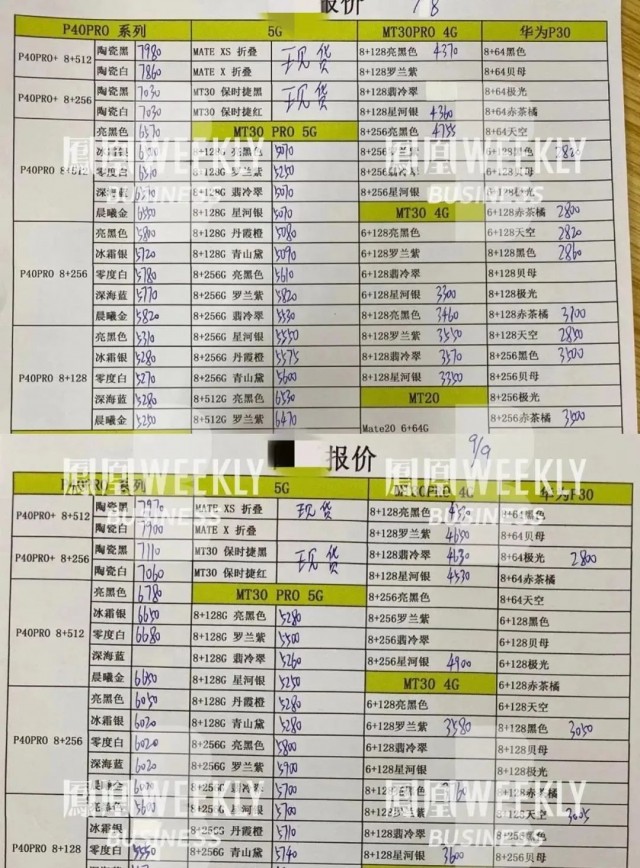 报价
P40PRO 系列 5G MT30PRO 4G 华为P30
P40PRO+ 8+512 陶瓷黑 7980 MATE XS 折叠 现货 8+128亮黑色 4370 8+64黑色
陶瓷白 7860 MATE X 折叠 8+128罗兰紫 8+64贝母
P40PRO+ 8+256 陶瓷黑 7030 MT30 保时捷黑 现货 8+128翡冷翠 8+64极光
陶瓷白 7030 MT30 保时捷红 8+128星河银 4360 8+64赤茶橘
亮黑色 6570 MT30 PRO 5G 8+256亮黑色 4755 8+64天空
冰霜银 8+128G 亮黑色 5070 6+128黑色 2820
P40PRO 8+512 零度白 8+128G 罗兰紫 5250 8+256翡冷翠 6+128贝母
深海蓝 8+128G 翡冷翠 5070 8+256星河银 6+128极光
晨曦金 6550 8+128G 星河银 5070 MT30 4G 6+128赤茶橘 2800
亮黑色 5800 8+128G 丹霞橙 5080 6+128亮黑色 6+128天空 2820
冰霜银 5720 8+128G 青山黛 5090 6+128罗兰紫 8+128黑色 2860
P40PRO 8+256 零度白 5780 8+256G 亮黑色 5610 6+128翡冷翠 8+128贝母
深海蓝 5770 8+256G 罗兰紫 5820 6+128星河银 3300 8+128极光
晨曦金 5820 8+256G 翡冷翠 5530 8+128亮黑色 3460 8+128赤茶橘 3700
亮黑色 5310 8+256G 星河银 5550 8+128罗兰紫 3550 8+128天空 2850
冰霜银 5280 8+256G 丹霞橙 5575 8+128翡冷翠 3570 8+256黑色 3500
P40PRO 8+128 零度白 5270 8+256G 青山黛 5600 8+128星河银 3350 8+256贝母
深海蓝 5280 8+512G 亮黑色 6530 MT20 8+256极光
晨曦金 5250 8+512G 罗兰紫 6470 Mate20 6+64G 8+256赤茶橘 3500
凰WEEKLY
BUSINESS
报价 9/9
5G
P40PRO+ 8+512 陶瓷黑 7970 MATE XS 折叠 现货 8+128亮黑色 8+64黑色
陶瓷白 7900 MATE X 折叠 8+128罗兰紫 4650 8+64贝母
P40PRO+ 8+256 陶瓷黑 7110 MT30 保时捷黑 现货 8+128翡冷翠 4630 8+64极光 2800
陶瓷白 7060 MT30 保时捷红 8+128星河银 4530 8+64赤茶橘
亮黑色 6780 MT30 PRO 5G 8+256亮黑色 8+64天空
冰霜银 6650 8+128G 亮黑色 5280 8+256罗兰紫 6+128黑色
P40PRO 8+512 零度白 6680 8+128G 罗兰紫 5500 8+256翡冷翠 6+128贝母
深海蓝 8+128G 翡冷翠 5260 8+256星河银 4900 6+128极光
晨曦金 6650 8+128G 星河银 5250 MT30 4G 6+128赤茶橘
亮黑色 6050 8+128G 丹霞橙 5280 6+128亮黑色 6+128天空
冰霜银 6020 8+128G 青山黛 5280 6+128罗兰紫 3580 8+128黑色 3050
P40PRO 8+256 零度白 6020 8+256G 亮黑色 5800 6+128翡冷翠 8+128贝母
深海蓝 6020 8+256G 罗兰紫 5900 6+128星河银 8+128极光
5700
5700 8+128天空
冰霜银 8+256G 丹霞橙 5710 8+128翡冷翠
P40PRO 8+128 零度白 5550 8+256G 青山黛 5740 8+128星河银 3600 8+256贝母